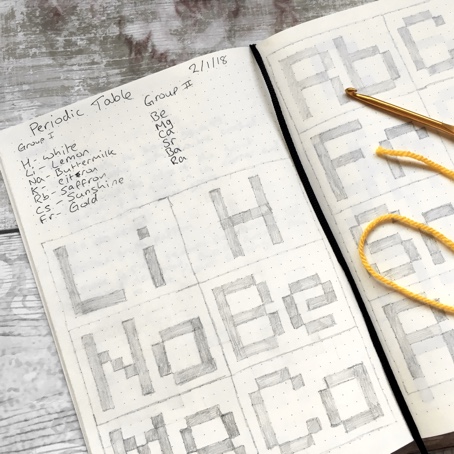 2/1/18
Periodic Table
Group I
H - White
Li - Lemon
Na - Buttermilk
K - Citron
Rb - Saffron
Cs - Sunshine
Fr - Gold
Group II
Be
Mg
Ca
Sr
Ba
Ra
Li H
Na Be
Mg Ca
Rb
Fr